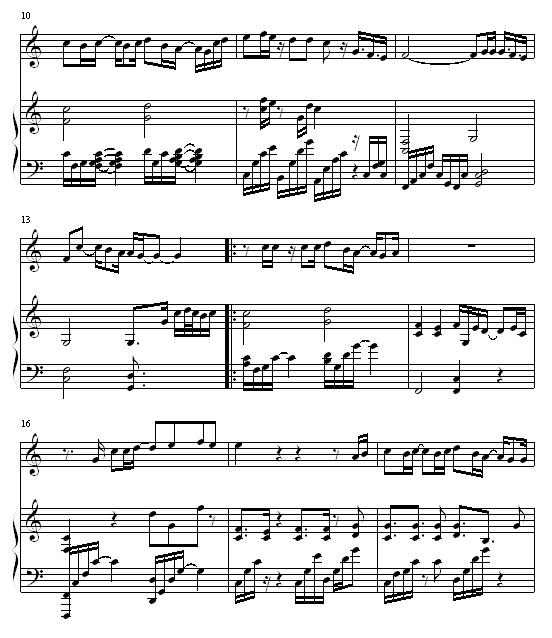 10
13
16